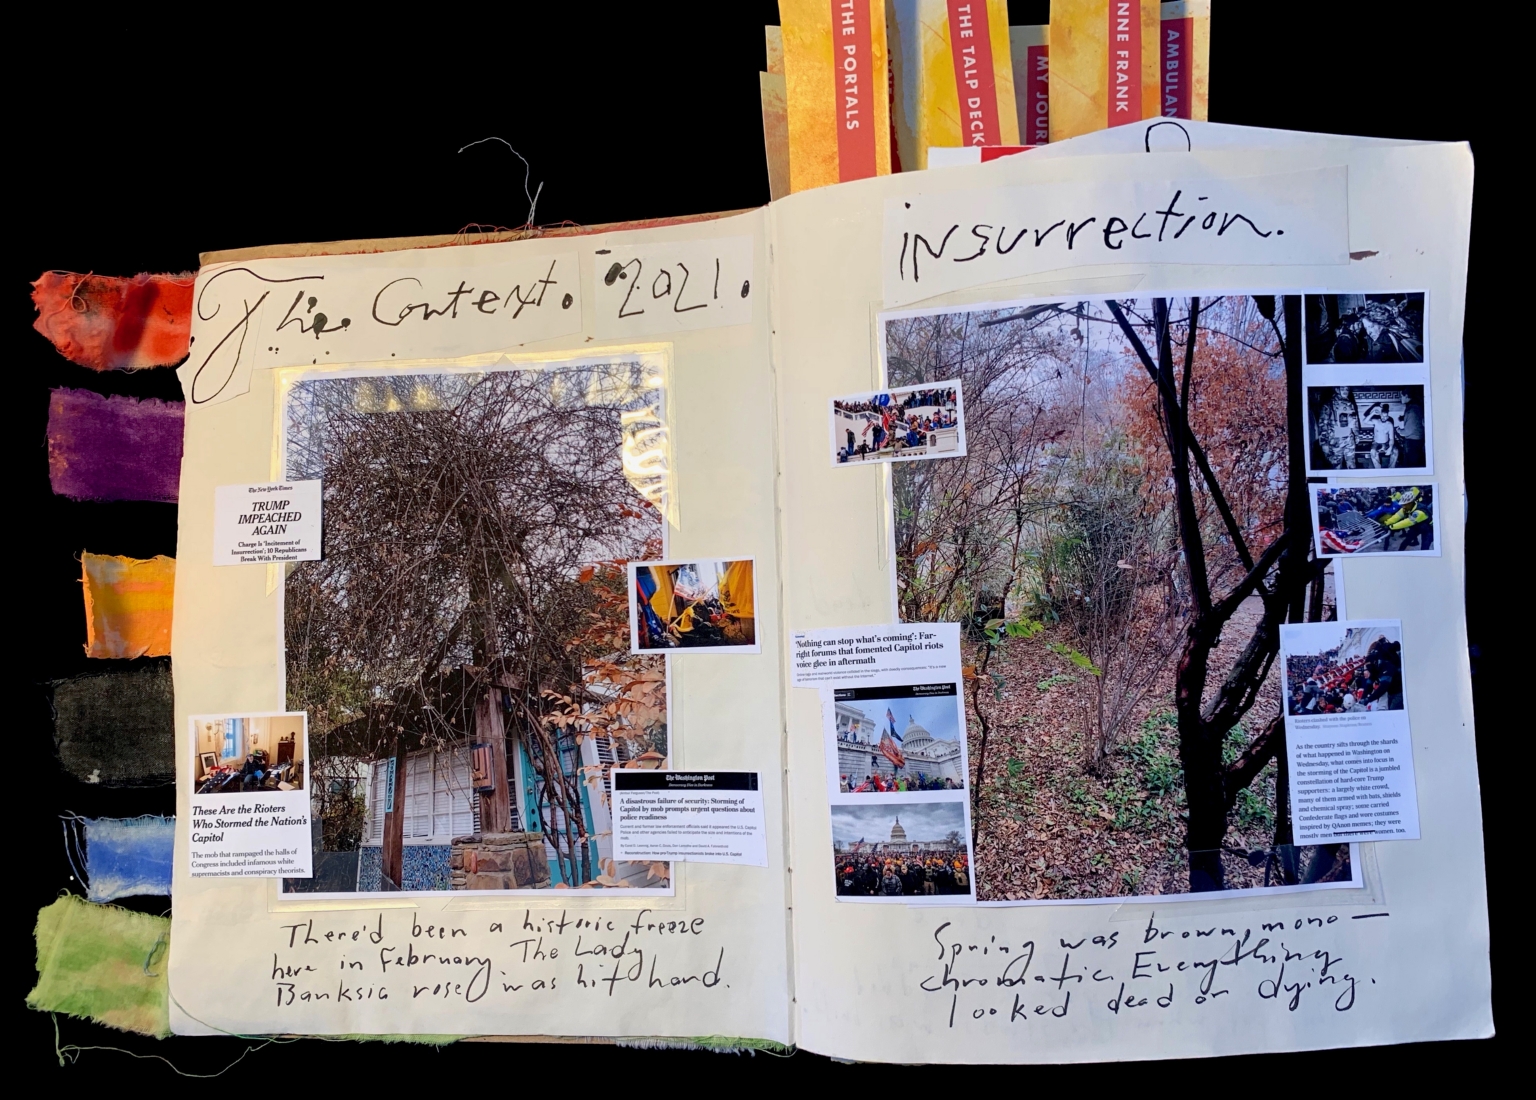 THE PORTALS
THE TALP DECK
MY JOUR
NNE FRANK
AMBULAN
The Context. 2021.
The New York Times
TRUMP
IMPEACHED
AGAIN
Charge Is 'Incitement of
Insurrection'; 10 Republicans
Break With President
These Are the Rioters
Who Stormed the Nation's
Capitol
The mob that rampaged the halls of
Congress included infamous white
supremacists and conspiracy theorists.
The Washington Post
Democracy Dies in Darkness
A disastrous failure of security: Storming of
Capitol by mob prompts urgent questions about
police readiness
Current and former law enforcement officials said it appeared the U.S. Capitol
Police and other agencies failed to anticipate the size and intentions of the
mob.
There'd been a historic freeze
here in February. The Lady
Banksia rose was hit hard.
insurrection.
'Nothing can stop what's coming': Far-
right forums that fomented Capitol riots
voice glee in aftermath
The Washington Post
Democracy Dies in Darkness
Rioters clashed with the police on
Wednesday.
As the country sifts through the shards
of what happened in Washington on
Wednesday, what comes into focus in
the storming of the Capitol is a jumbled
constellation of hard-core Trump
supporters: a largely white crowd,
many of them armed with bats, shields
and chemical spray; some carried
Confederate flags and wore costumes
inspired by QAnon memes; they were
mostly men but there were women, too.
Spring was brown, mono—
chromatic. Everything
looked dead or dying.